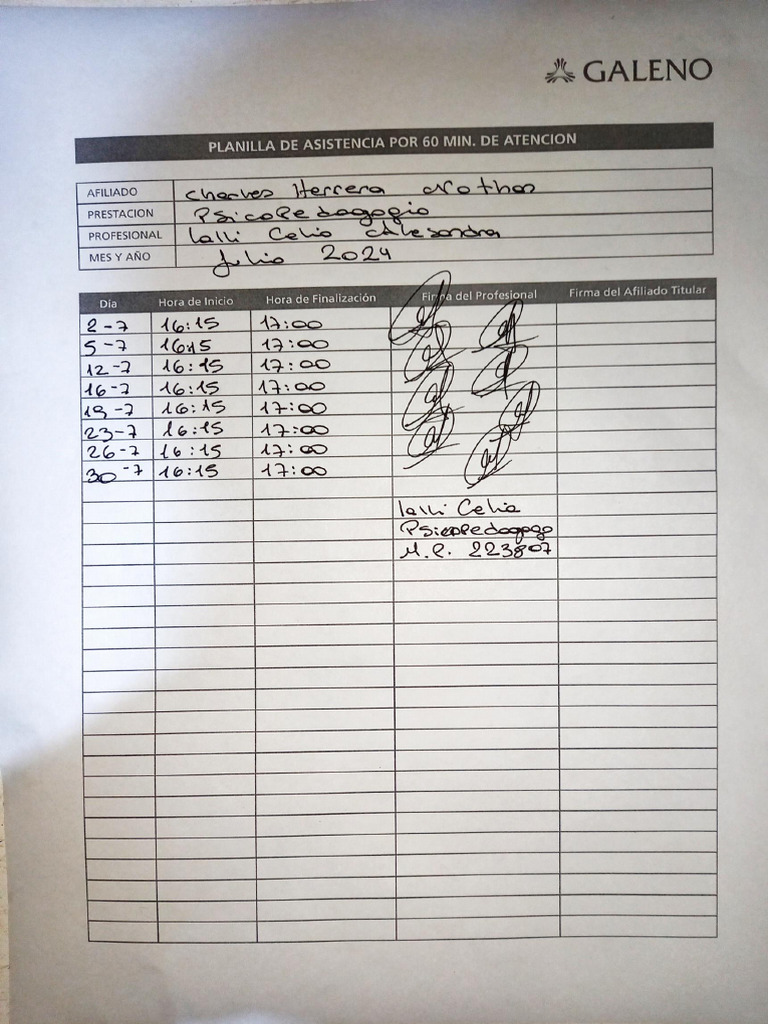 GALENO
PLANILLA DE ASISTENCIA POR 60 MIN. DE ATENCION
AFILIADO Charles Herrera Nothan
PRESTACION PsicoPedagogia
PROFESIONAL Lalli Celia Alesandra
MES Y AÑO Julio 2024
Día Hora de Inicio Hora de Finalización Firma del Profesional Firma del Afiliado Titular
2-7 16:15 17:00
5-7 16:15 17:00
12-7 16:15 17:00
16-7 16:15 17:00
19-7 16:15 17:00
23-7 16:15 17:00
26-7 16:15 17:00
30-7 16:15 17:00
Lalli Celia
PsicoPedagoga
M.P. 223807